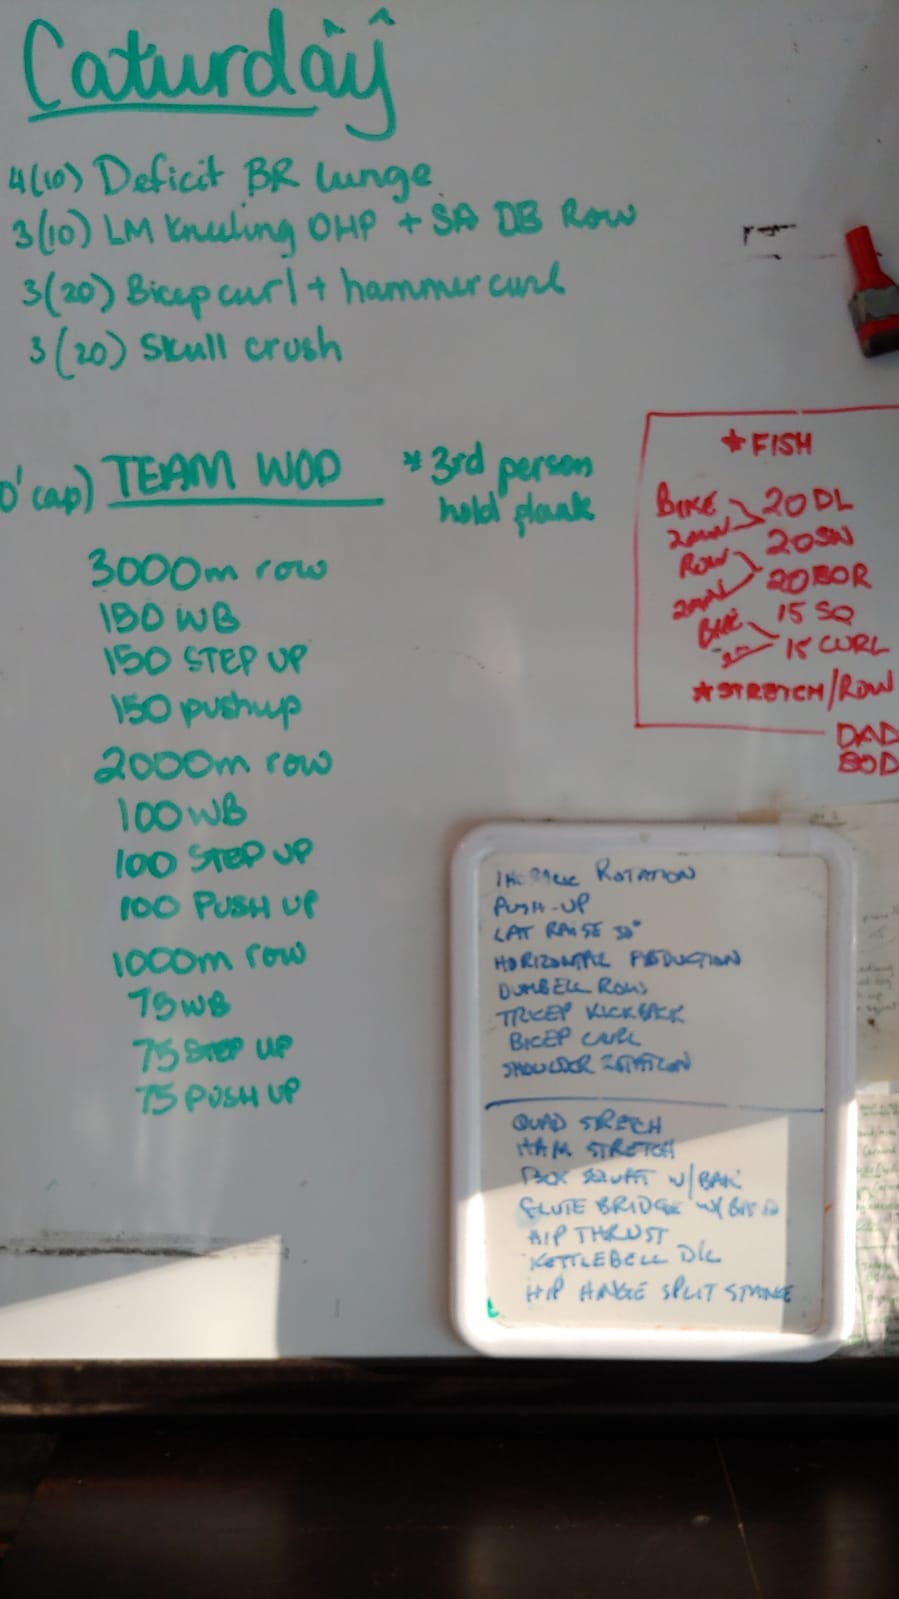 Caturday
4(10) Deficit BR lunge
3(10) LM Kneeling OHP + SA DB Row
3(20) Bicep curl + hammer curl
3(20) Skull crush
0' cap) TEAM WOD
* 3rd person
hold plank
3000m row
150 WB
150 STEP UP
150 pushup
2000m row
100 WB
100 STEP UP
100 PUSH UP
1000m row
75 WB
75 STEP UP
75 PUSH UP
★ FISH
BIKE 20 DL
2min 20 SN
ROW 20 BOR
2min
BIKE 15 SQ
15 CURL
★ STRETCH/ROW
DAD
BOD
ROTATION
PUSH-UP
LAT RAISE
HORIZONTAL
DUMBELL ROW
TRICEP KICKBACK
BICEP CURL
SHOULDER ROTATION
QUAD STRECH
HAM STRETCH
BOX SQUAT W/
GLUTE BRIDGE W/
HIP THRUST
KETTLEBELL D/L
HIP HINGE SPLIT STANCE